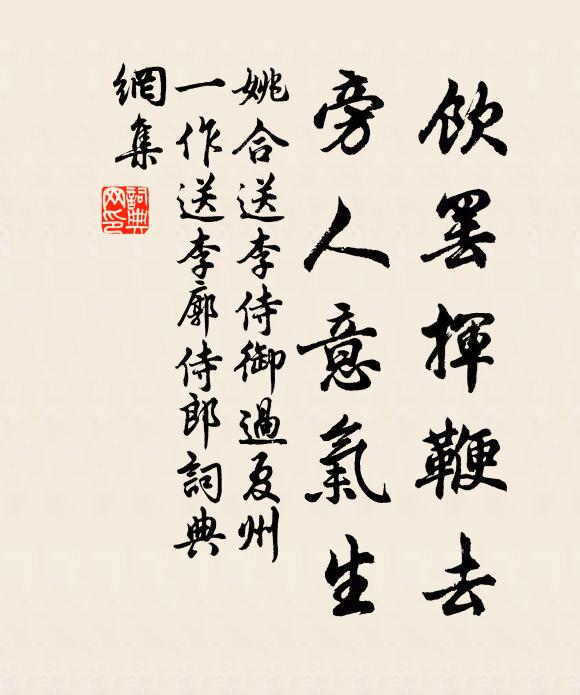 飲罷揮鞭去
旁人意氣生
姚合送李侍御過夏州
一作送李廓侍郎詞典
網集
詞典
网印